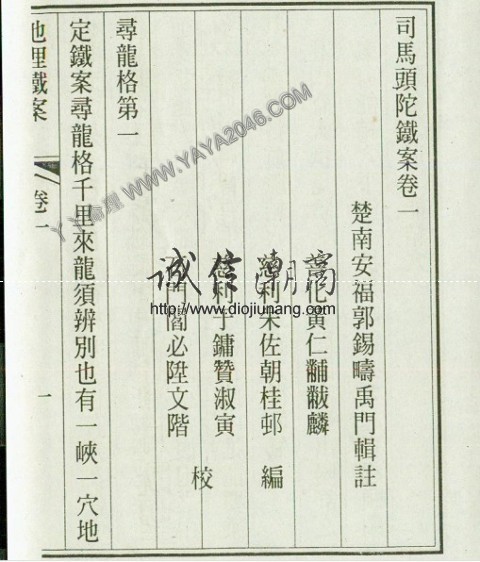 司馬頭陀鐵案卷一
楚南安福郭錫疇禹門輯註
化黃仁黼黻麟
利朱佐朝桂邨 編
利于鏞贊淑寅
閻必陞文階 校
尋龍格第一
定鐵案尋龍格千里來龍須辨別也有一峽一穴地
地理鐵案 卷一 一
WWW.YAYA2046.COM
誠信潮高
http://www.diojiunang.com